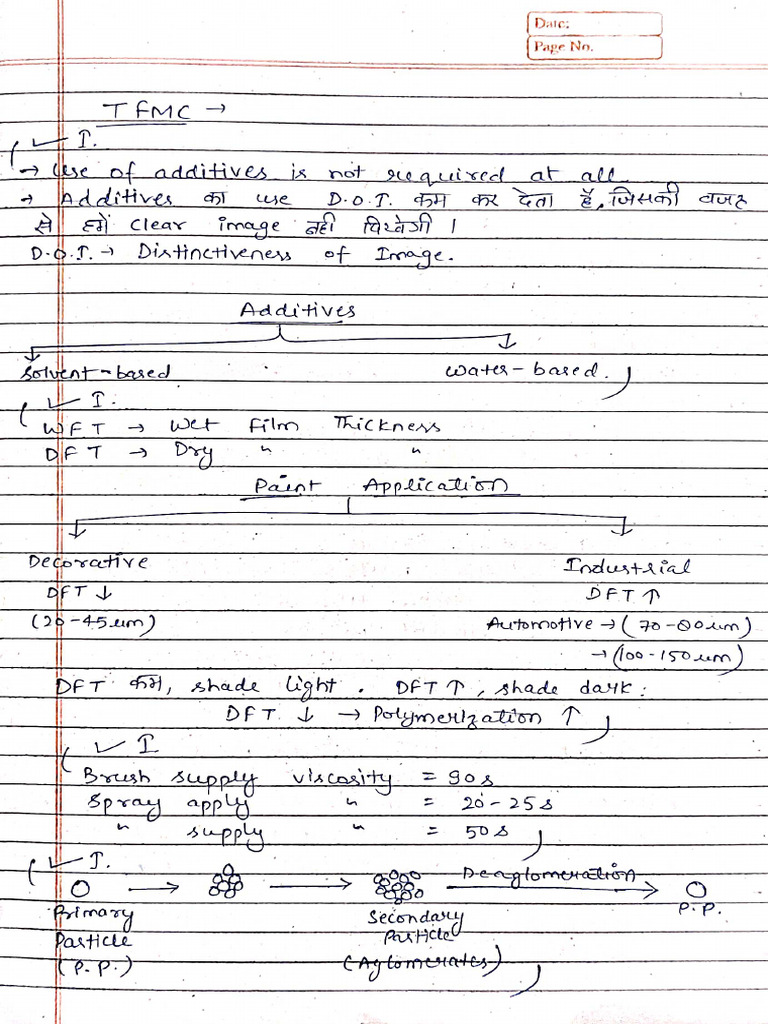 Date:
Page No.
TFMC →
✓ I.
→ Use of additives is not required at all
→ Additives का use D.O.I. कम कर देता है, जिसकी वजह
से हमें clear image नही दिखेगी ।
D.O.I. → Distinctiveness of Image.
Additives
Solvent-based Water-based.
✓ I.
WFT → Wet Film Thickness
DFT → Dry " "
Paint Application
Decorative Industrial
DFT ↓ DFT ↑
(20-45um) Automotive → (70-80um)
→ (100-150um)
DFT कम, shade light. DFT ↑, shade dark.
DFT ↓ → Polymerization ↑
✓ I
Brush supply viscosity = 90s
Spray apply " = 20-25s
" supply " = 50s
✓ I.
Deaglomeration
Primary Particle (P.P.)
Secondary Particle (Aglomerates)
P.P.